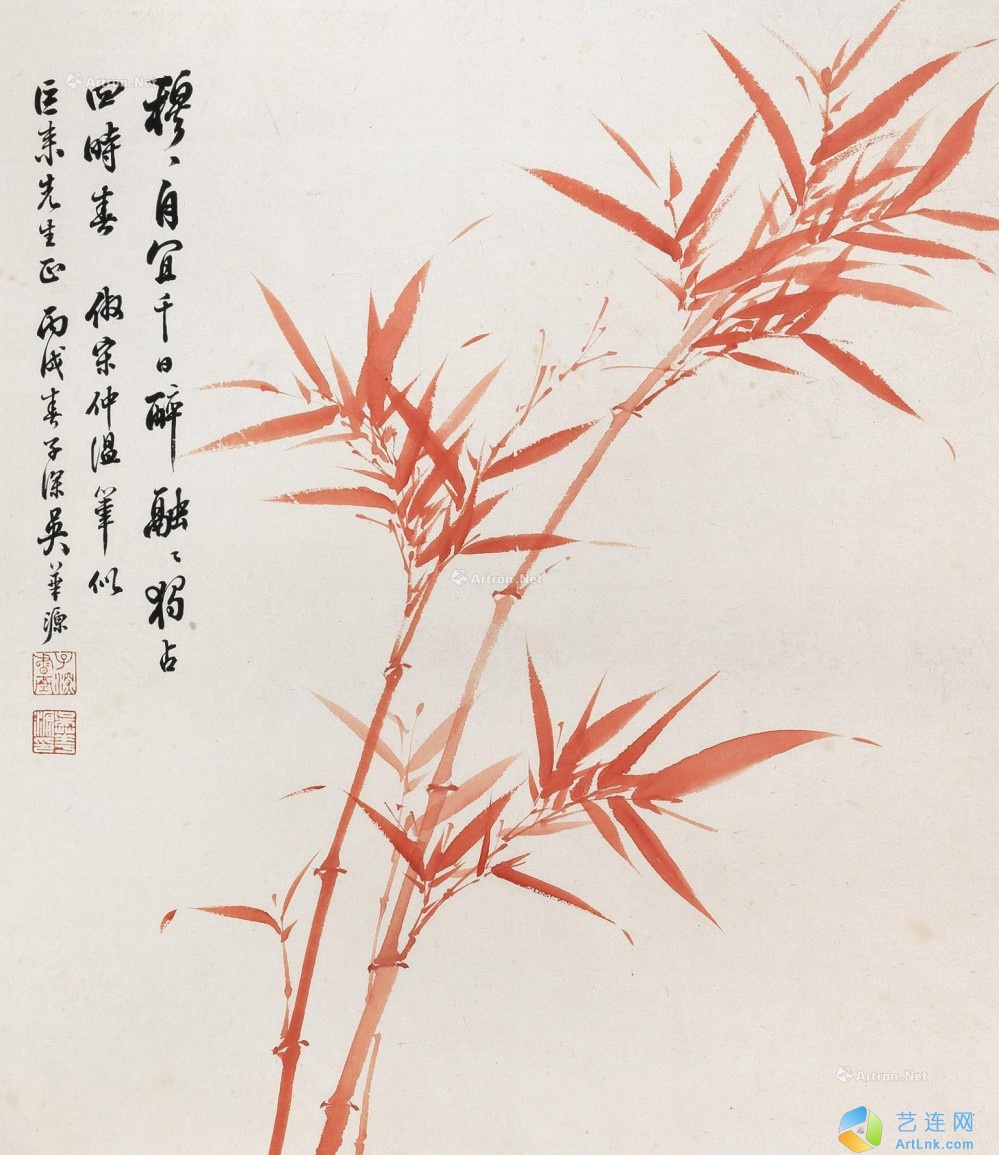 穆〻自宜千日醉融〻獨占
四時春 倣宋仲温筆似
巨来先生正 丙戌春子深吴華源
Artron.Net
Artron.Net
Artron.Net
艺连网
ArtLnk.com